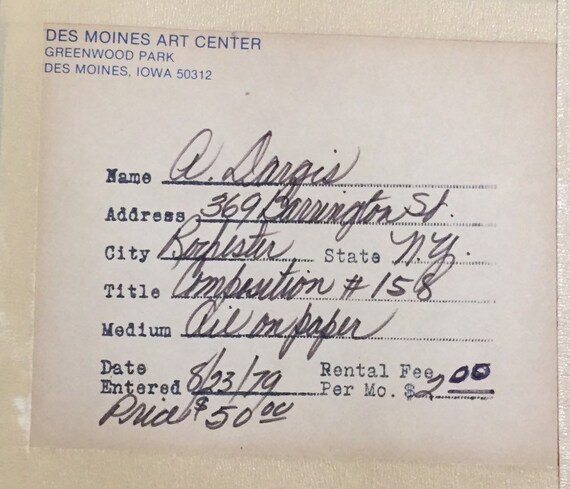 DES MOINES ART CENTER
GREENWOOD PARK
DES MOINES, IOWA 50312
Name A. Dargis
Address 369 Barrington St.
City Rochester State N.Y.
Title Composition # 158
Medium Oil on paper
Date Entered 8/23/79 Rental Fee Per Mo. $2 00
Price $ 50 00